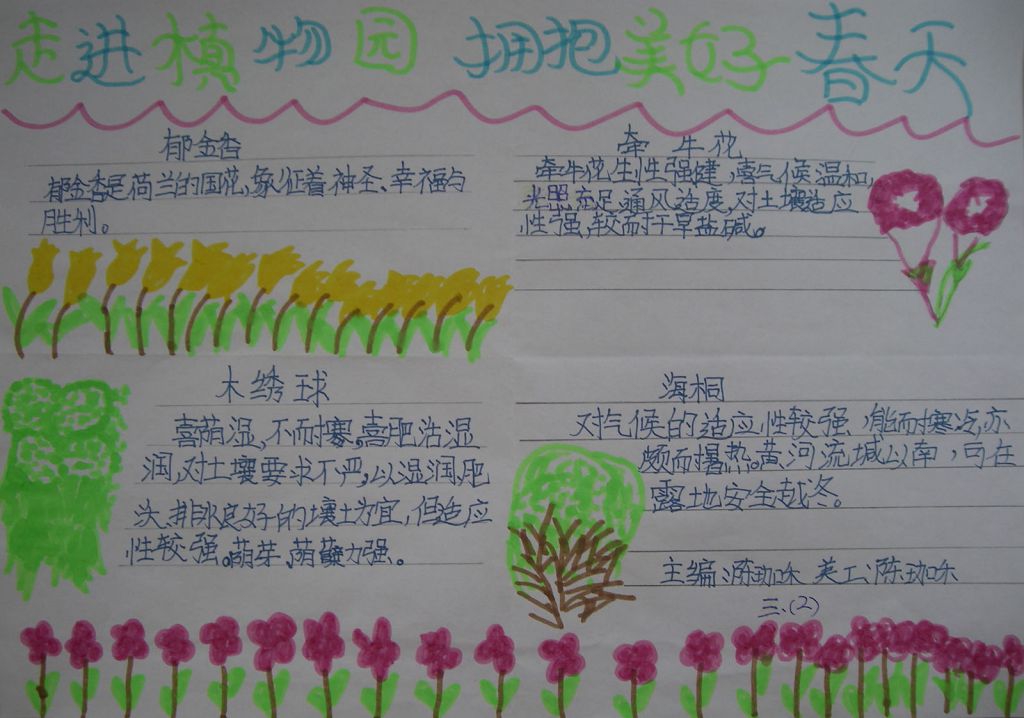 走进植物园 拥抱美好春天
郁金香
郁金香是荷兰的国花,象征着神圣、幸福与
胜利。
牵牛花
牵牛花生性强健,喜气候温和,
光照充足,通风适度,对土壤适应
性强,较而耐干旱盐碱。
木绣球
喜荫湿、不耐寒。喜肥沽湿
润,对土壤要求不严,以湿润、肥
沃、排水良好的壤土为宜,但适应
性较强。萌芽、萌蘖力强。
海桐
对气候的适应性较强,能耐寒冷,亦
颇耐暑热。黄河流域以南,可在
露地安全越冬。
主编:陈珈咏 美工:陈珈咏
三.(2)